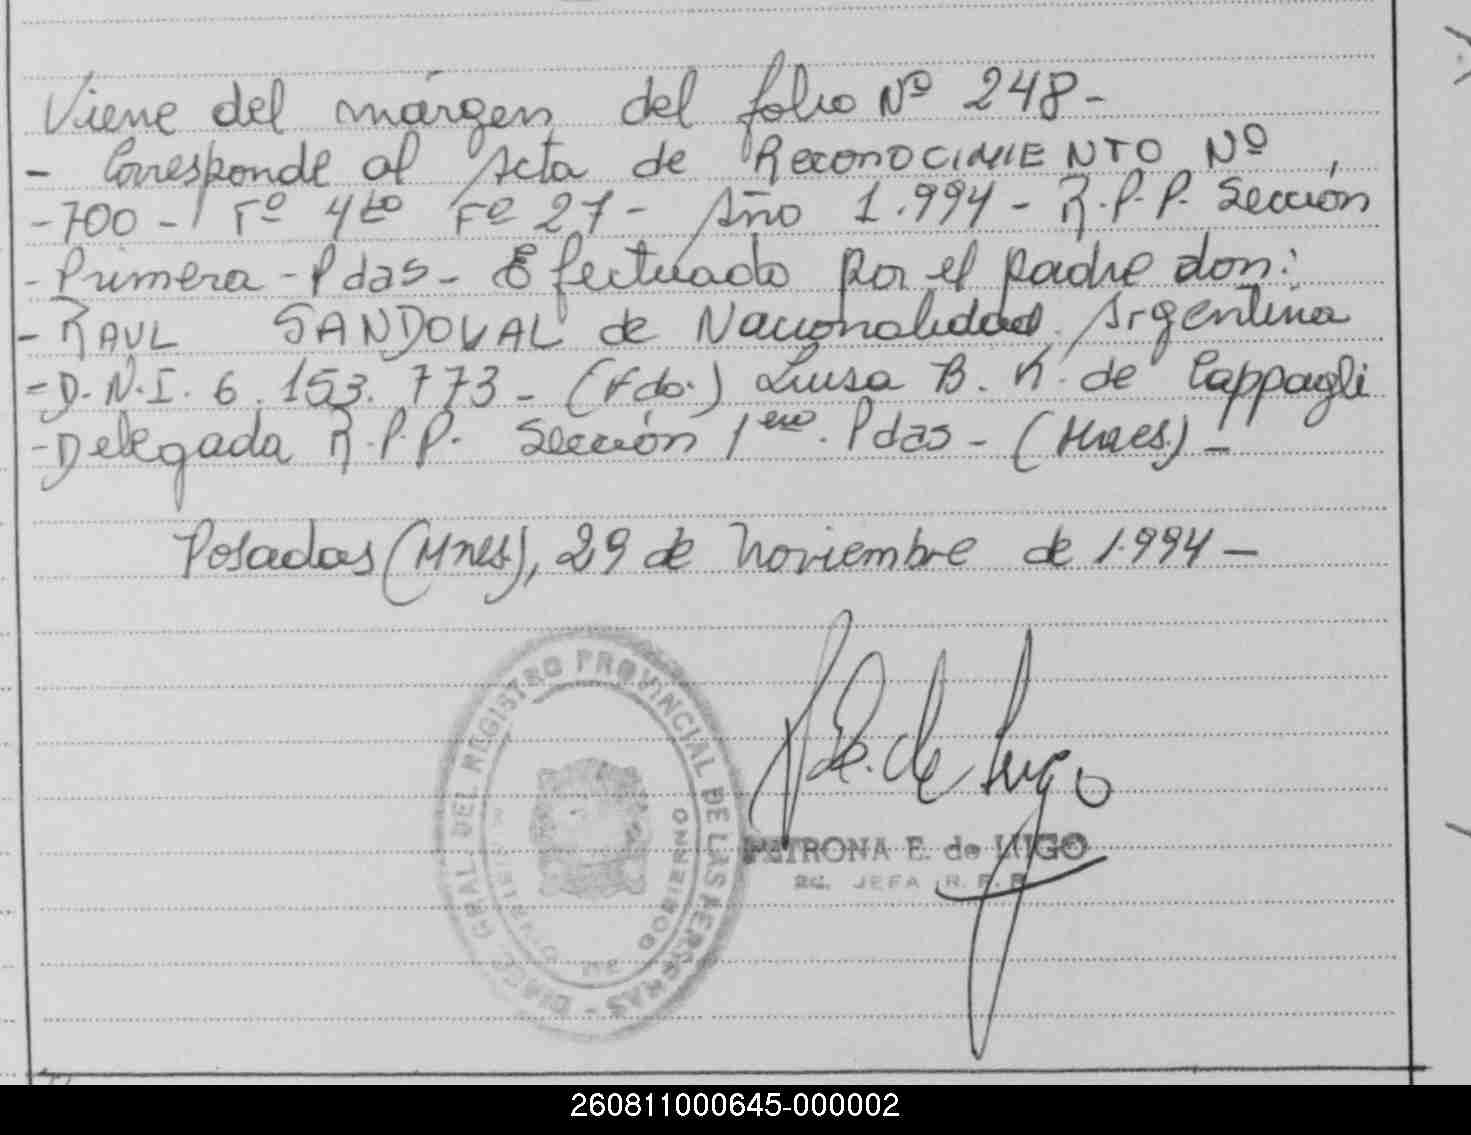 Viene del márgen del folio Nº 248-
- Corresponde al Acta de RECONOCIMIENTO Nº
-700- Tº 4to Fº 27- Año 1.994- R.P.P. Sección
-Primera -Pdas- Efectuado por el padre don:
-RAUL SANDOVAL de Nacionalidad Argentina
-D.N.I. 6.153.773- (Fdo.) Luisa B. K. de Cappagli
-Delegada R.P.P. Sección 1era. Pdas- (Mnes.)-
Posadas (Mnes.), 29 de Noviembre de 1.994-
GRAL. DEL REGISTRO PROVINCIAL DE LAS PERSONAS - DIREC.
MINISTERIO DE GOBIERNO
P. E. de Lugo
PETRONA E. de LUGO
2da. JEFA R.P.P.
260811000645-000002